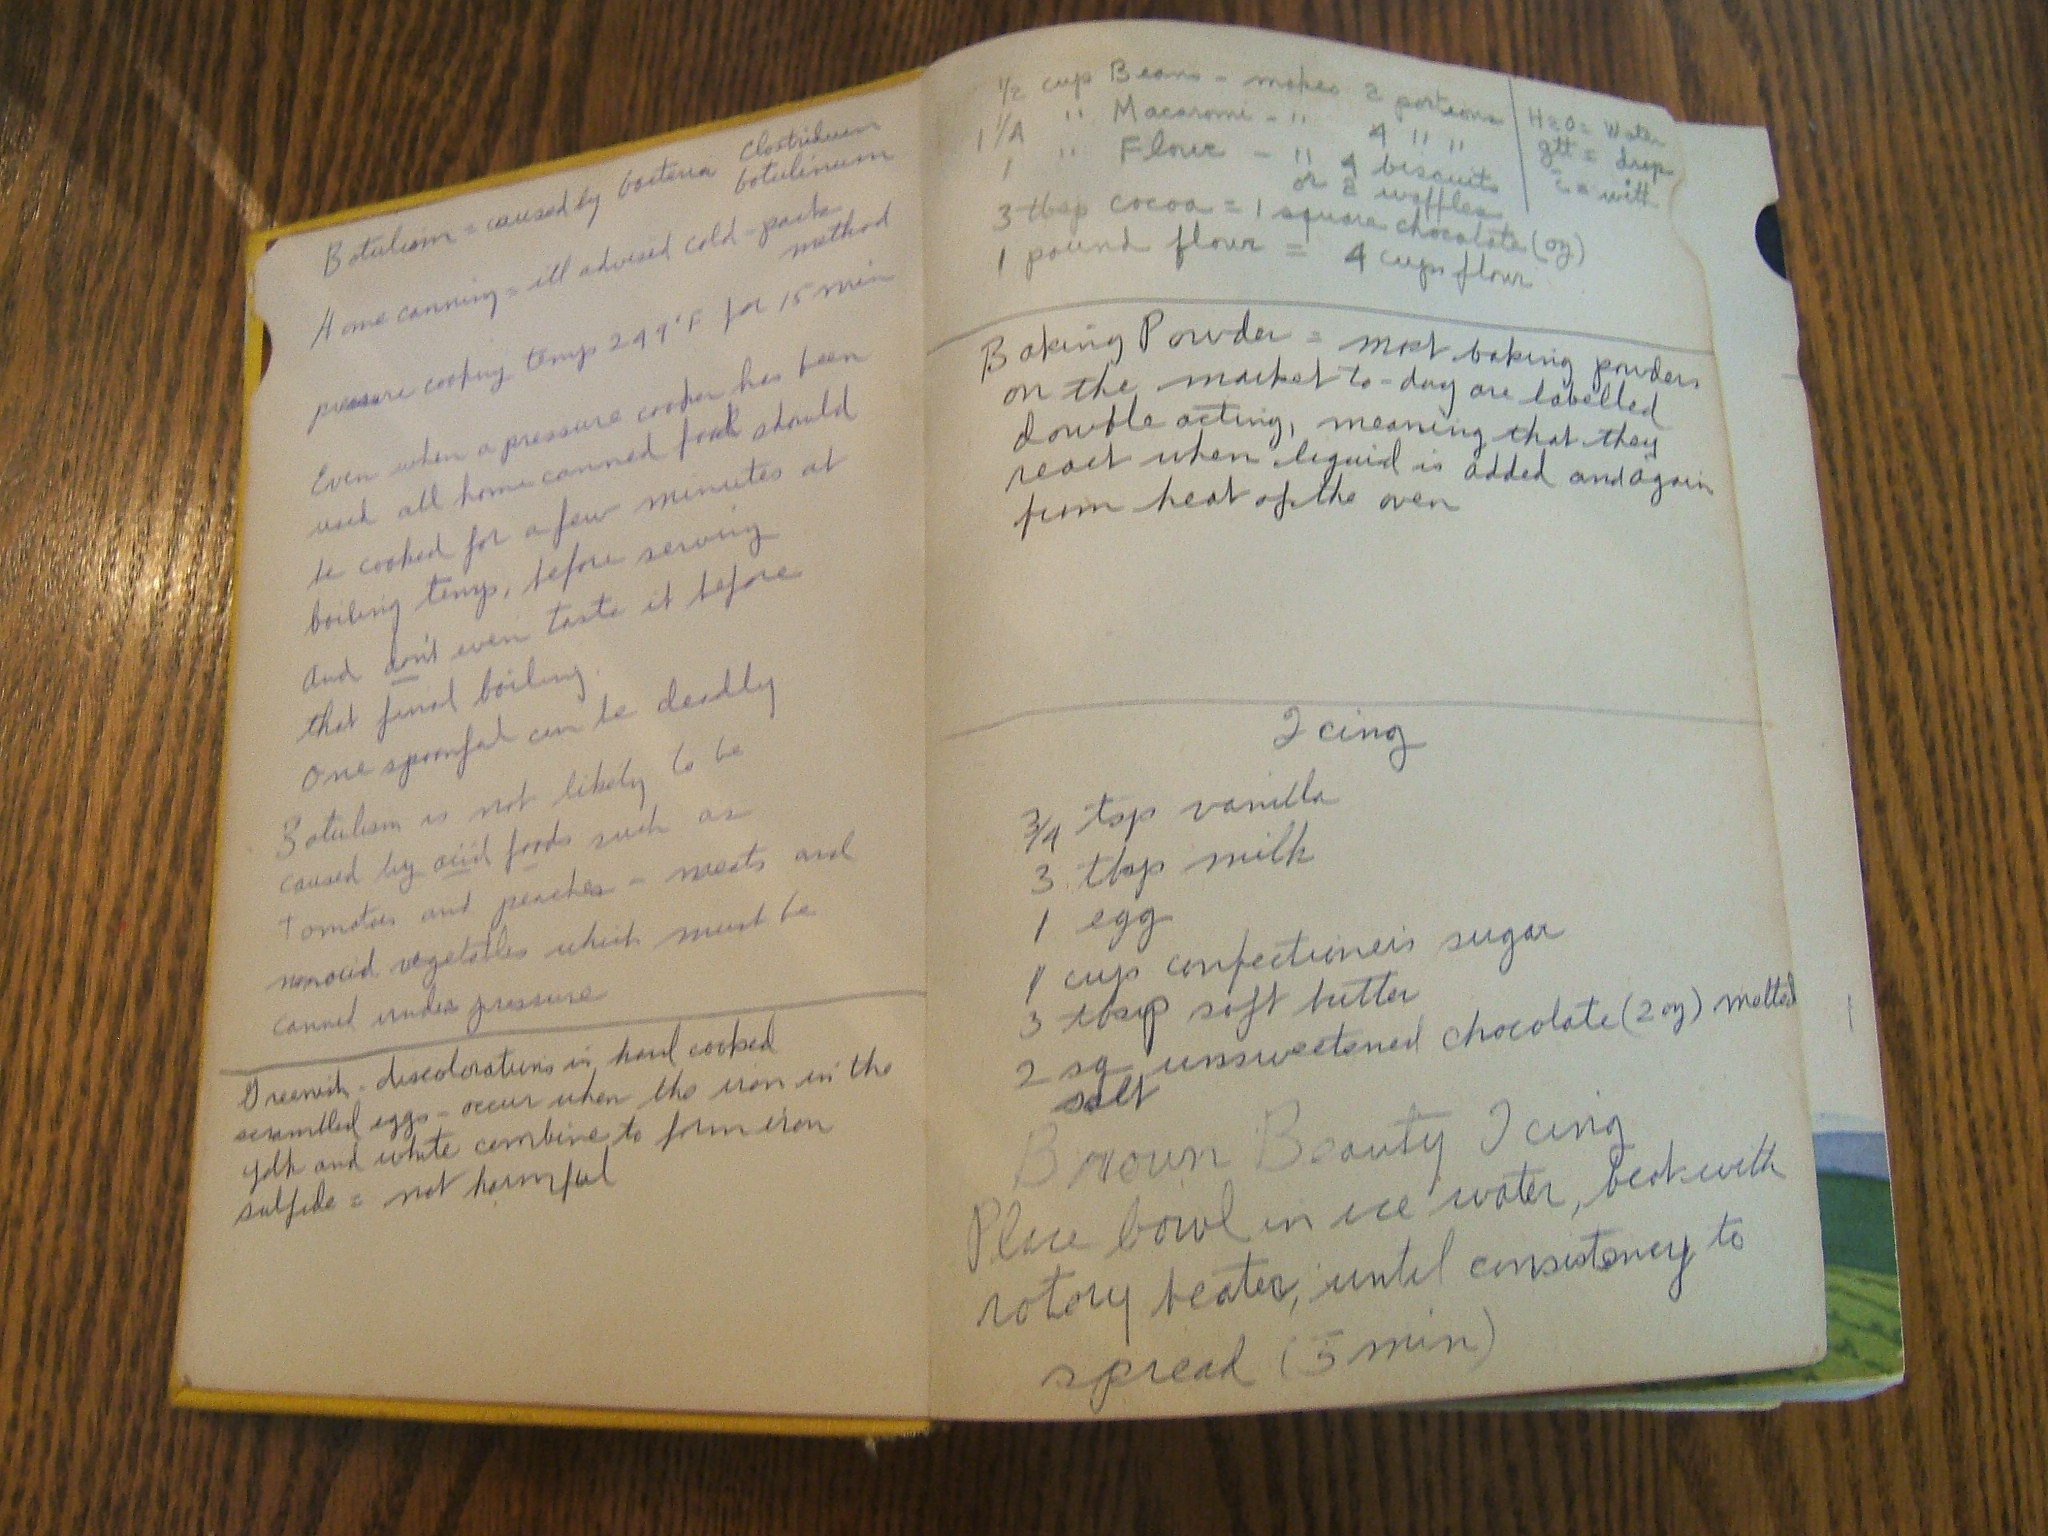 Botulism = caused by bacteria Clostridium
botulinum
Home canning = ill advised cold-pack
method
pressure cooking temp 249°F for 15 min
Even when a pressure cooker has been
used all home canned food should
be cooked for a few minutes at
boiling temp, before serving
and don't even taste it before
that final boiling.
One spoonful can be deadly
Botulism is not likely to be
caused by acid foods such as
tomatoes and peaches - meats and
nonacid vegetables which must be
canned under pressure
Greenish - discolorations in hard cooked
scrambled eggs - occur when the iron in the
yolk and white combine to form iron
sulfide = not harmful
1/2 cup Beans - makes 2 portions
1 1/4 " Macaroni - " 4 " "
1 " Flour - " 4 biscuits
or 2 waffles
3 tbsp cocoa = 1 square chocolate (oz)
1 pound flour = 4 cups flour
H2O = Water
gtt = drop
c̄ = with
Baking Powder = most baking powders
on the market to-day are labelled
double acting, meaning that they
react when liquid is added and again
from heat of the oven
Icing
3/4 tsp vanilla
3 tbsp milk
1 egg
1 cup confectioneis sugar
3 tbsp soft butter
2 sq unsweetened chocolate (2 oz) melted
salt
Brown Beauty Icing
Place bowl in ice water, beat with
rotory beater, until consistency to
spread (5 min)